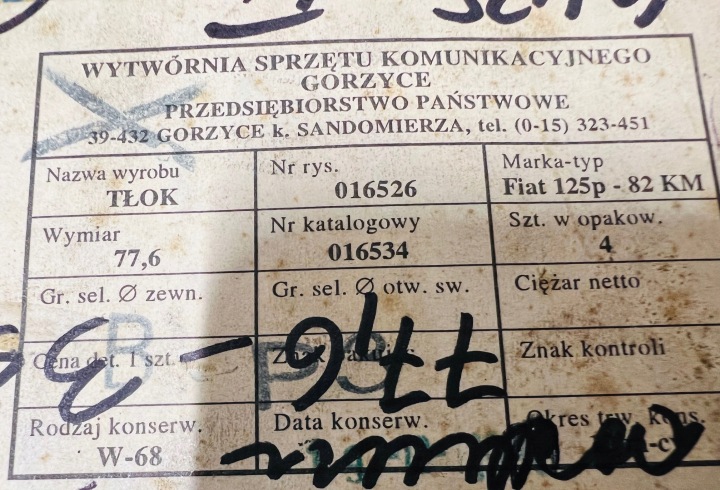 WYTWÓRNIA SPRZĘTU KOMUNIKACYJNEGO
GORZYCE
PRZEDSIĘBIORSTWO PAŃSTWOWE
39-432 GORZYCE k. SANDOMIERZA, tel. (0-15) 323-451
Nazwa wyrobu
TŁOK
Nr rys.
016526
Marka-typ
Fiat 125p - 82 KM
Wymiar
77,6
Nr katalogowy
016534
Szt. w opakow.
4
Gr. sel. Ø zewn.
Gr. sel. Ø otw. sw.
Ciężar netto
Cena det. 1 szt.
Znak
Znak kontroli
77,6
Rodzaj konserw.
W-68
Data konserw.
Okres trw. kons.